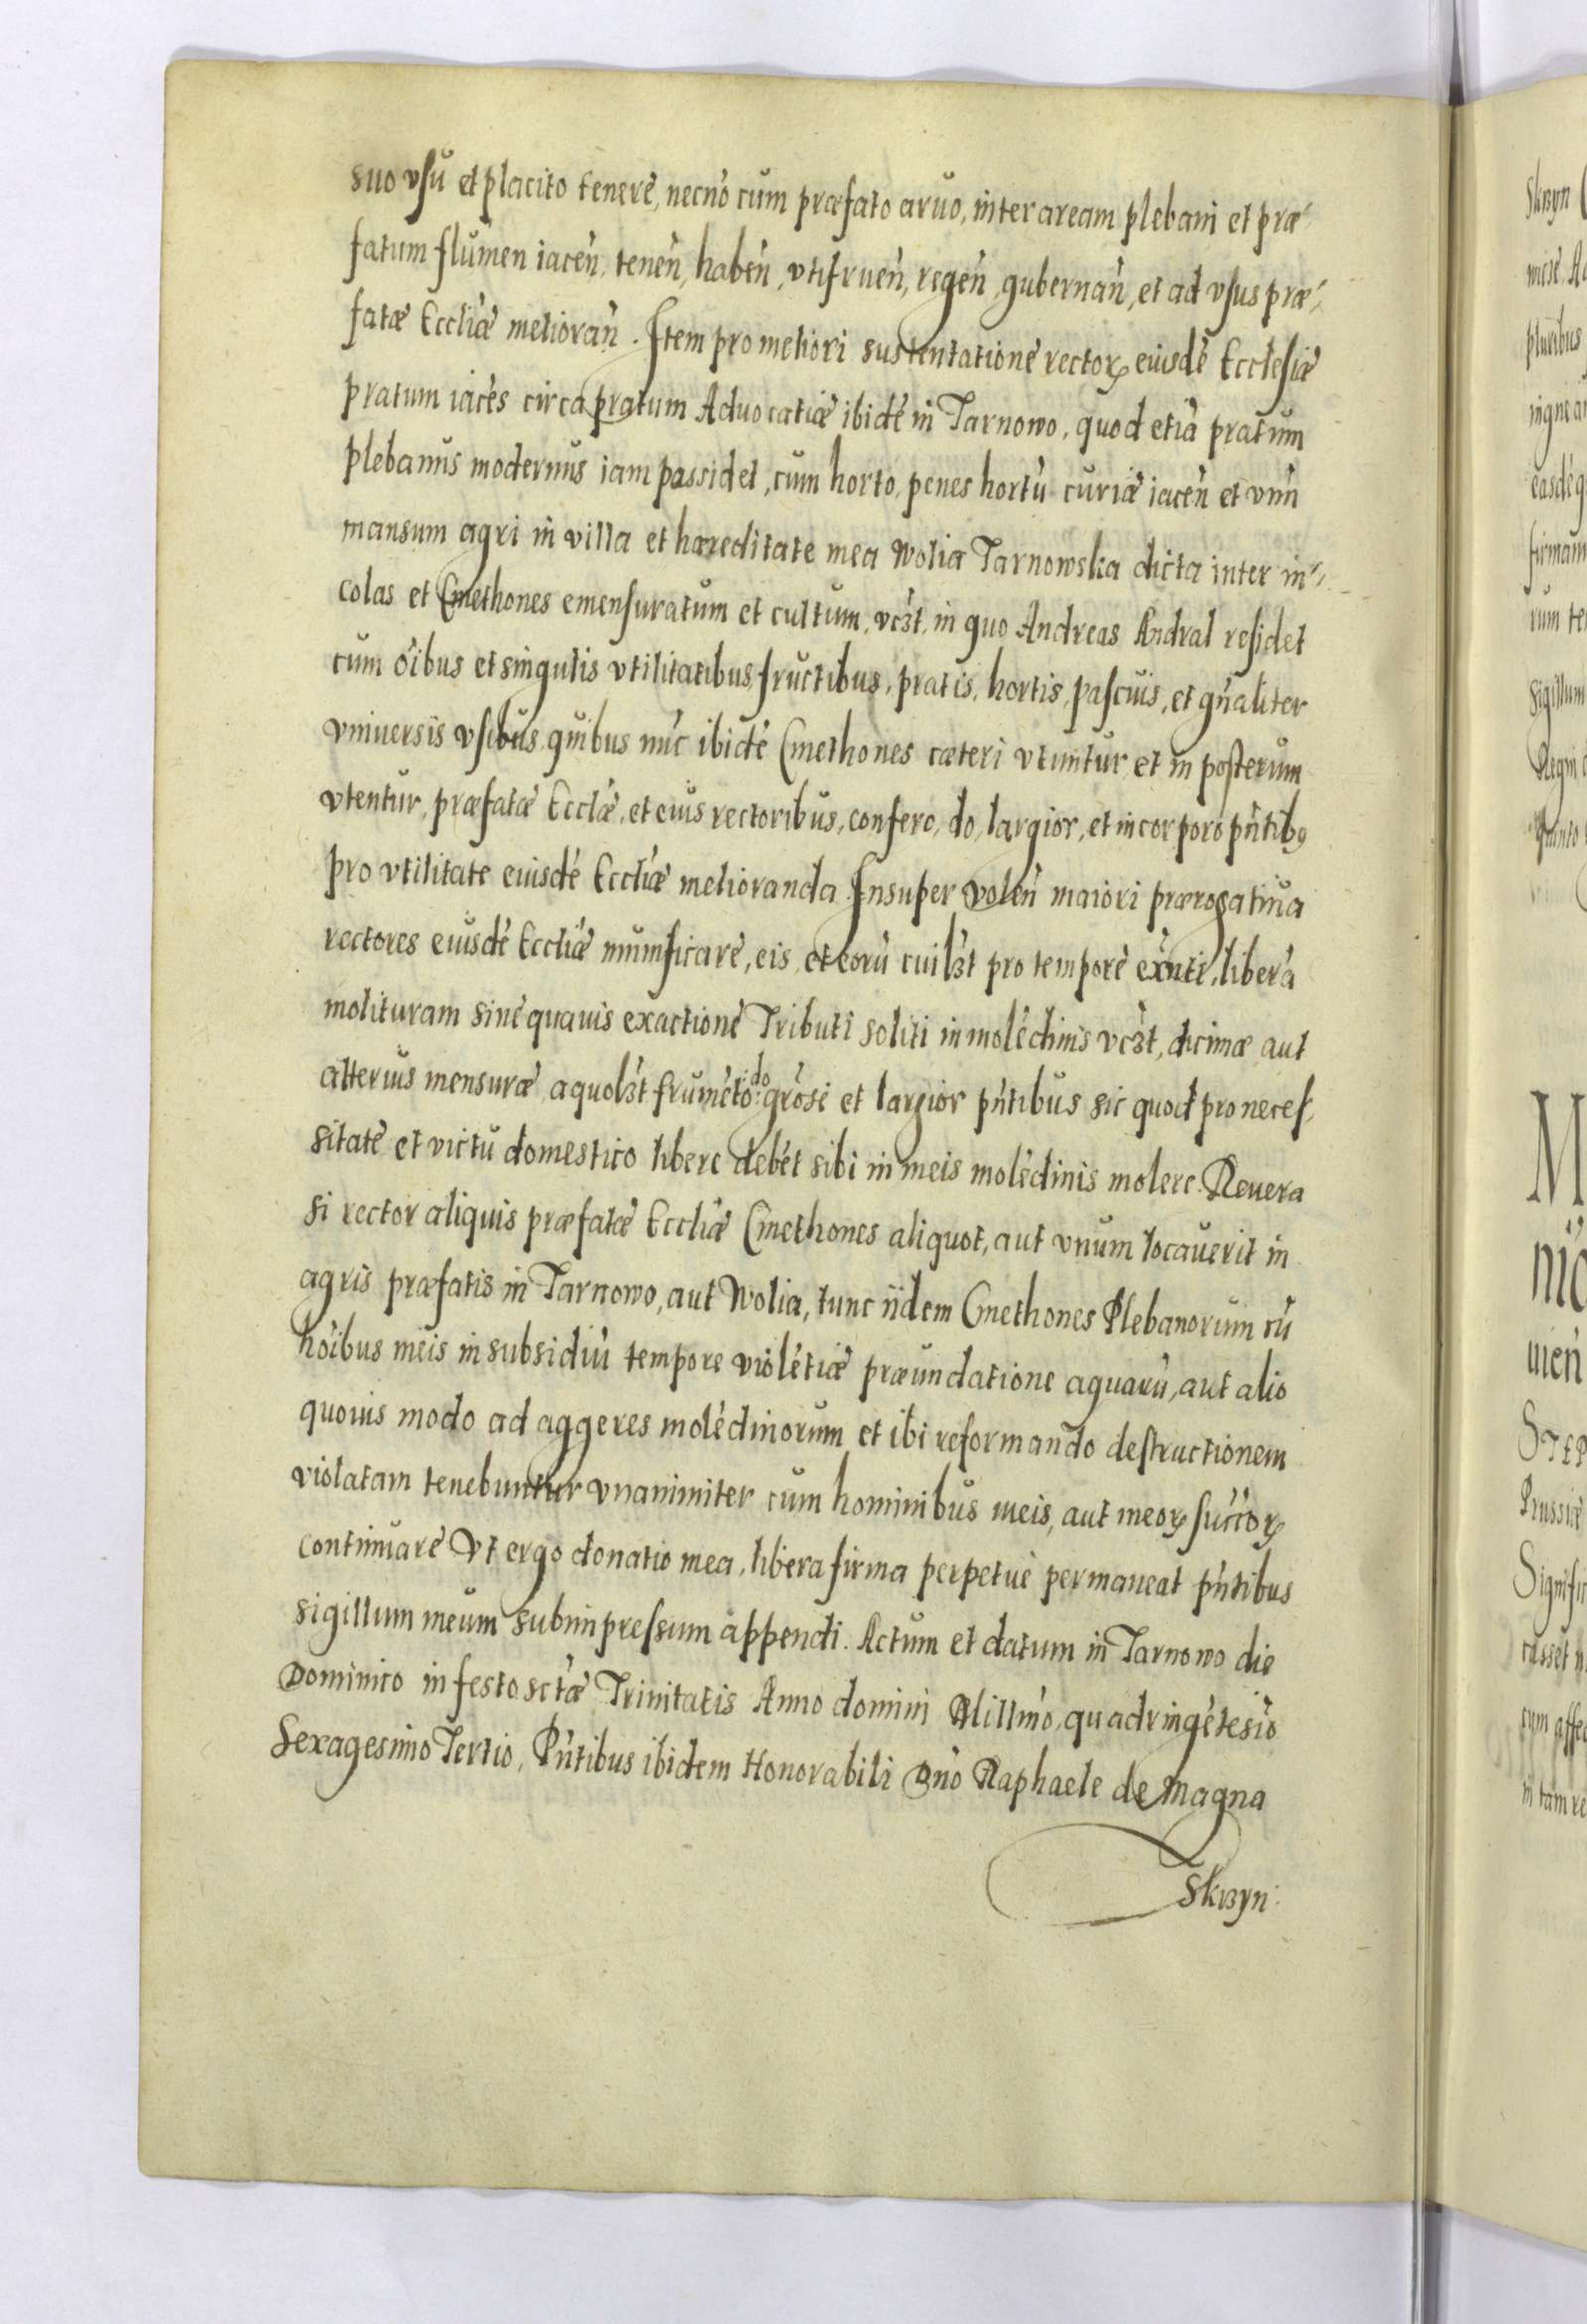 suo vsu et placito tenere, necnō cum præfato aruo, inter aream plebani et præ-
fatum flumen iacen̄, tenen̄, haben̄, vtifruen̄, regen̄, gubernan̄, et ad vsus præ-
fatæ Eccliæ melioran̄. Item pro meliori sustentatione rectorꝝ eiusdē Ecclesiæ
pratum iacēs circa pratum Aduocatiæ ibidē in Tarnowo, quod etiā pratum
plebanus modernus iam possidet, cum horto, penes hortū curiæ iacen̄ et vnū
mansum agri in villa et hæreditate mea Wolia Tarnowska dicta inter in-
colas et Cmethones emensuratum et cultum, vcꝫt, in quo Andreas Andral residet
cum oībus et singulis vtilitatibus, fructibus, pratis, hortis, pascuis, et gn̄aliter
vniuersis vsibus, quibus nūc ibidē Cmethones cæteri vtuntur, et in posterum
vtentur, præfatæ Ecclæ, et eius rectoribus, confero, do, largior, et incorporo pn̄tibꝯ
pro vtilitate eiusdē Eccliæ melioranda. Insuper volen̄ maiori prærogatiua
rectores eiusdē Eccliæ munificare, eis et eorū cuilꝫt pro tempore exn̄ti, liberā
molituram sine quauis exactione Tributi soliti in molēdinis vcꝫt, decimæ aut
alterius mensuræ, a quolꝫt frumēto: do grose et largior pn̄tibus sic quod pro neces-
sitate et victu domestico libere debēt sibi in meis molēdinis molere. Revera
si rector aliquis præfatæ Eccliæ Cmethones aliquot, aut vnum locaverit in
agris præfatis in Tarnowo, aut Wolia, tunc iidem Cmethones Plebanorum cū
hoībus meis in subsidiū tempore violētiæ præundatione aquarū, aut alio
quouis modo ad aggeres molēdinorum et ibi reformando destructionem
violatam tenebuntur vnanimiter cum hominibus meis, aut meorꝝ succorꝝ
continuare Vt ergo donatio mea, libera firma perpetue permaneat pn̄tibus
sigillum meum subimpressum appendi. Actum et datum in Tarnowo die
Dominico in festo sctæ Trinitatis Anno domini Millmō, quadringētesiō
Sexagesimo Tertio, Pn̄tibus ibidem Honorabili Dnō Raphaele de Magna
Skrzyn: